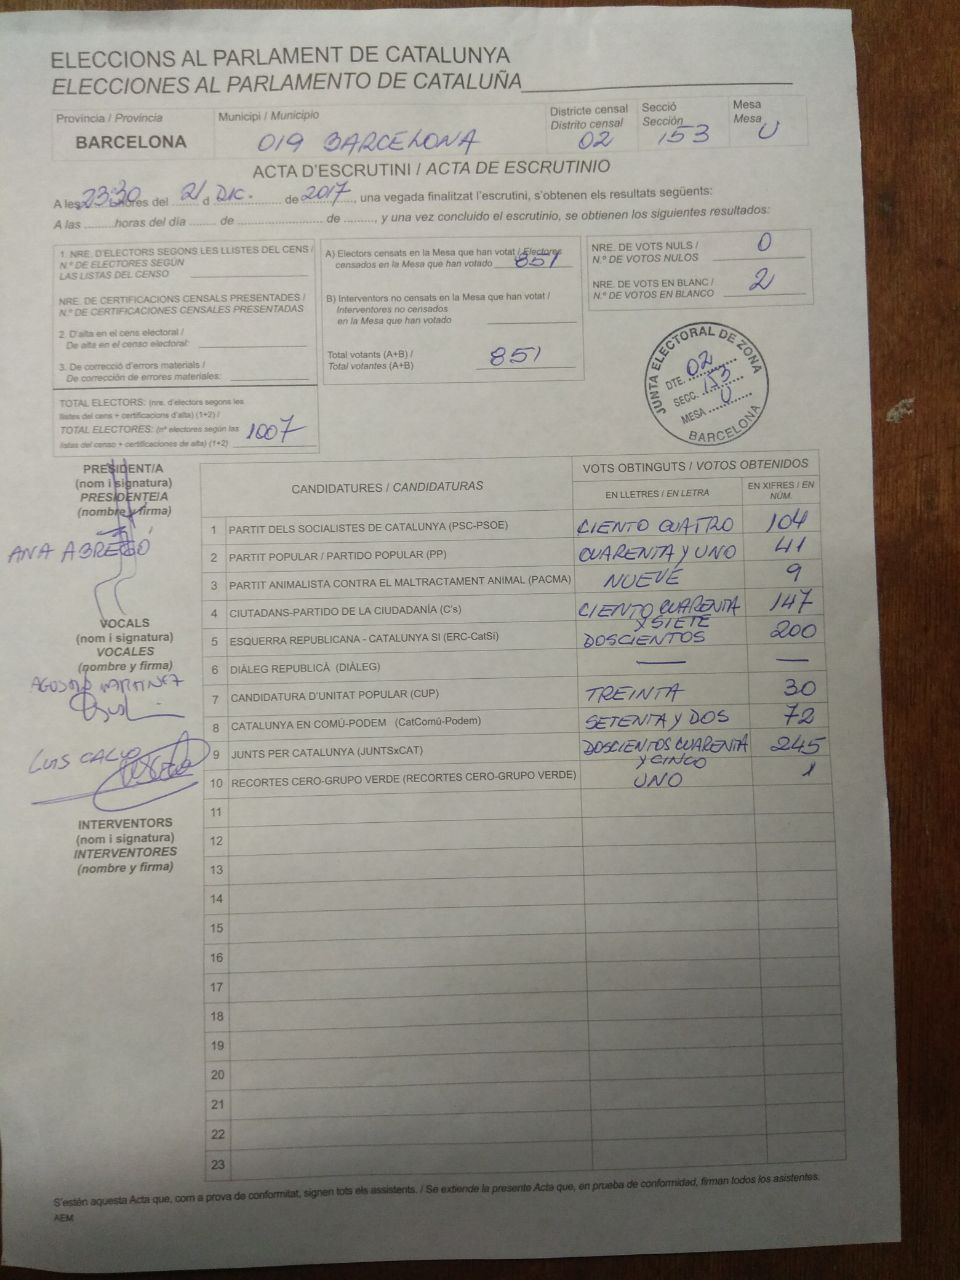 ELECCIONS AL PARLAMENT DE CATALUNYA
ELECCIONES AL PARLAMENTO DE CATALUÑA
Província / Provincia
BARCELONA
Municipi / Municipio
019 BARCELONA
Districte censal
Distrito censal
02
Secció
Sección
153
Mesa
Mesa
U
ACTA D'ESCRUTINI / ACTA DE ESCRUTINIO
A les 23:30 hores del 21 d DIC. de 2017, una vegada finalitzat l'escrutini, s'obtenen els resultats següents:
A las ......... horas del día ........ de ........................ de ........., y una vez concluido el escrutinio, se obtienen los siguientes resultados:
1. NRE. D'ELECTORS SEGONS LES LLISTES DEL CENS /
N.º DE ELECTORES SEGÚN
LAS LISTAS DEL CENSO
NRE. DE CERTIFICACIONS CENSALS PRESENTADES /
N.º DE CERTIFICACIONES CENSALES PRESENTADAS
2. D'alta en el cens electoral /
De alta en el censo electoral:
3. De correcció d'errors materials /
De corrección de errores materiales:
TOTAL ELECTORS: (nre. d'electors segons les
llistes del cens + certificacions d'alta) (1+2) /
TOTAL ELECTORES: (nº electores según las
listas del censo + certificaciones de alta) (1+2) 1007
A) Electors censats en la Mesa que han votat / Electores
censados en la Mesa que han votado 851
B) Interventors no censats en la Mesa que han votat /
Interventores no censados
en la Mesa que han votado
Total votants (A+B) /
Total votantes (A+B) 851
NRE. DE VOTS NULS /
N.º DE VOTOS NULOS 0
NRE. DE VOTS EN BLANC /
N.º DE VOTOS EN BLANCO 2
JUNTA ELECTORAL DE ZONA
DTE. 02
SECC. 153
MESA U
BARCELONA
PRESIDENT/A
(nom i signatura)
PRESIDENTE/A
(nombre y firma)
ANA ABREGÓ
VOCALS
(nom i signatura)
VOCALES
(nombre y firma)
MARTINEZ
LUIS CALVO
INTERVENTORS
(nom i signatura)
INTERVENTORES
(nombre y firma)
CANDIDATURES / CANDIDATURAS
VOTS OBTINGUTS / VOTOS OBTENIDOS
EN LLETRES / EN LETRA
EN XIFRES / EN NÚM.
1 PARTIT DELS SOCIALISTES DE CATALUNYA (PSC-PSOE) CIENTO CUATRO 104
2 PARTIT POPULAR / PARTIDO POPULAR (PP) CUARENTA Y UNO 41
3 PARTIT ANIMALISTA CONTRA EL MALTRACTAMENT ANIMAL (PACMA) NUEVE 9
4 CIUTADANS-PARTIDO DE LA CIUDADANÍA (C's) CIENTO CUARENTA Y SIETE 147
5 ESQUERRA REPUBLICANA - CATALUNYA SI (ERC-CatSí) DOSCIENTOS 200
6 DIÀLEG REPUBLICÀ (DIÀLEG) — —
7 CANDIDATURA D'UNITAT POPULAR (CUP) TREINTA 30
8 CATALUNYA EN COMÚ-PODEM (CatComú-Podem) SETENTA Y DOS 72
9 JUNTS PER CATALUNYA (JUNTSxCAT) DOSCIENTOS CUARENTA Y CINCO 245
10 RECORTES CERO-GRUPO VERDE (RECORTES CERO-GRUPO VERDE) UNO 1
11
12
13
14
15
16
17
18
19
20
21
22
23
S'estén aquesta Acta que, com a prova de conformitat, signen tots els assistents. / Se extiende la presente Acta que, en prueba de conformidad, firman todos los asistentes.
AEM